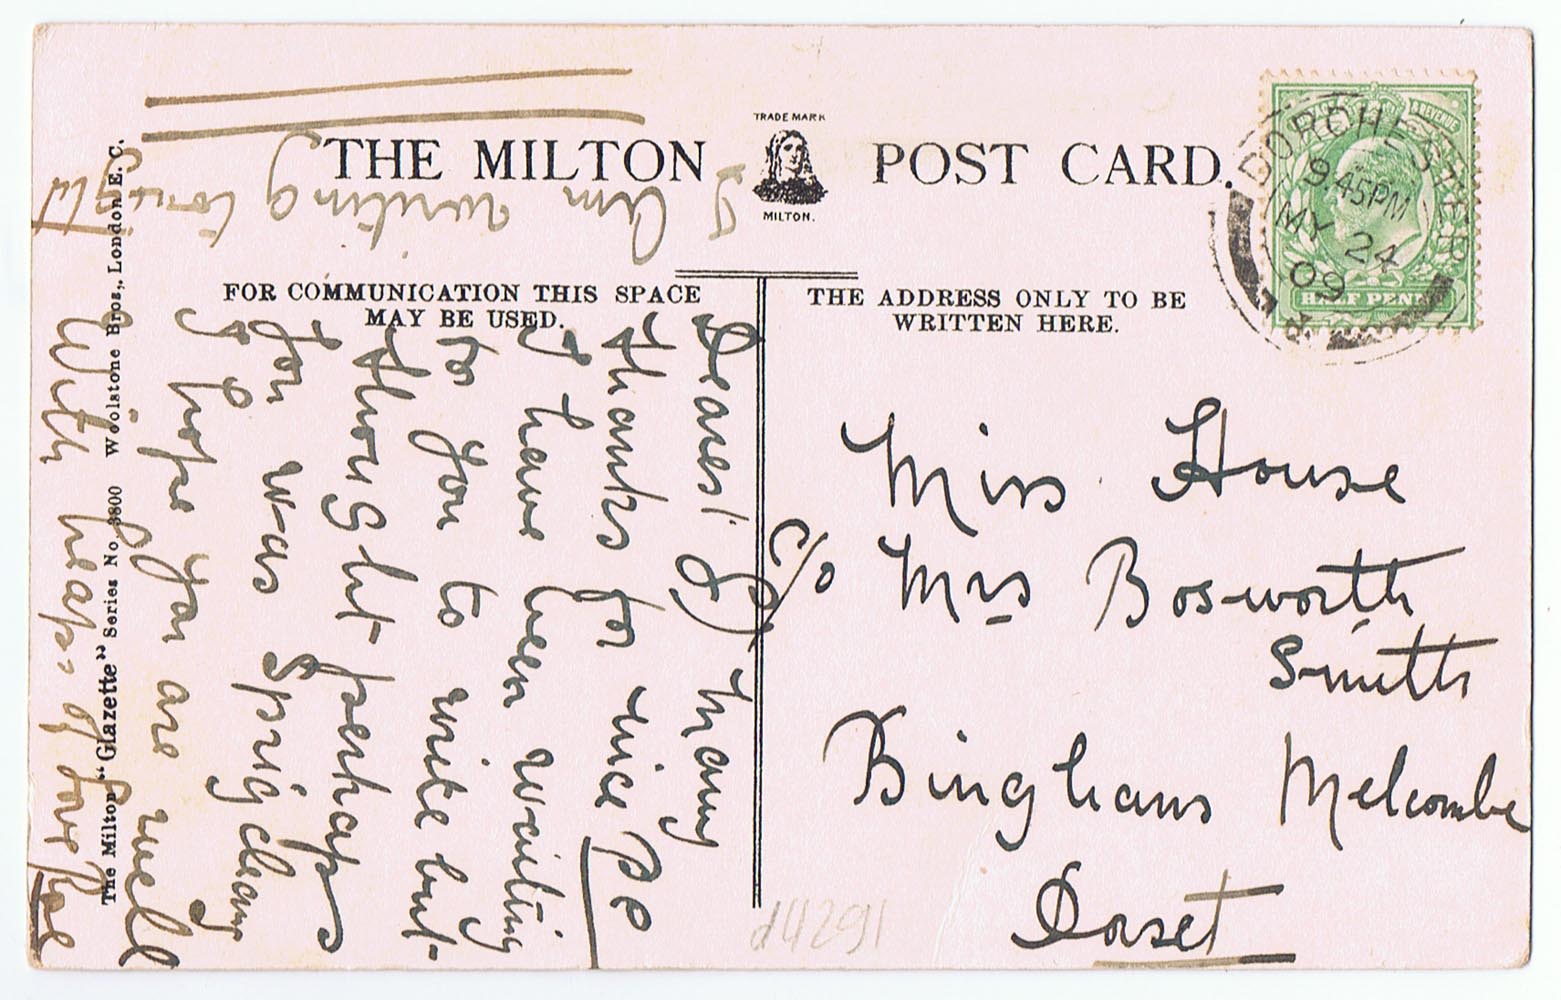 THE MILTON POST CARD.
TRADE MARK
MILTON.
FOR COMMUNICATION THIS SPACE
MAY BE USED.
THE ADDRESS ONLY TO BE
WRITTEN HERE.
DORCHESTER
9.45PM
MY 24
09
& REVENUE
HALF PENNY
Miss House
c/o Mrs Bosworth
Smith
Binghams Melcombe
Dorset
Dearest many
thanks for nice PC
I have been waiting
for you to write but
thought perhaps
you was Spring cleang
I hope you are well
With heaps of love
I am writing to
The Milton "Glazette" Series No. 3800 Woolstone Bros., London E.C.
d4291